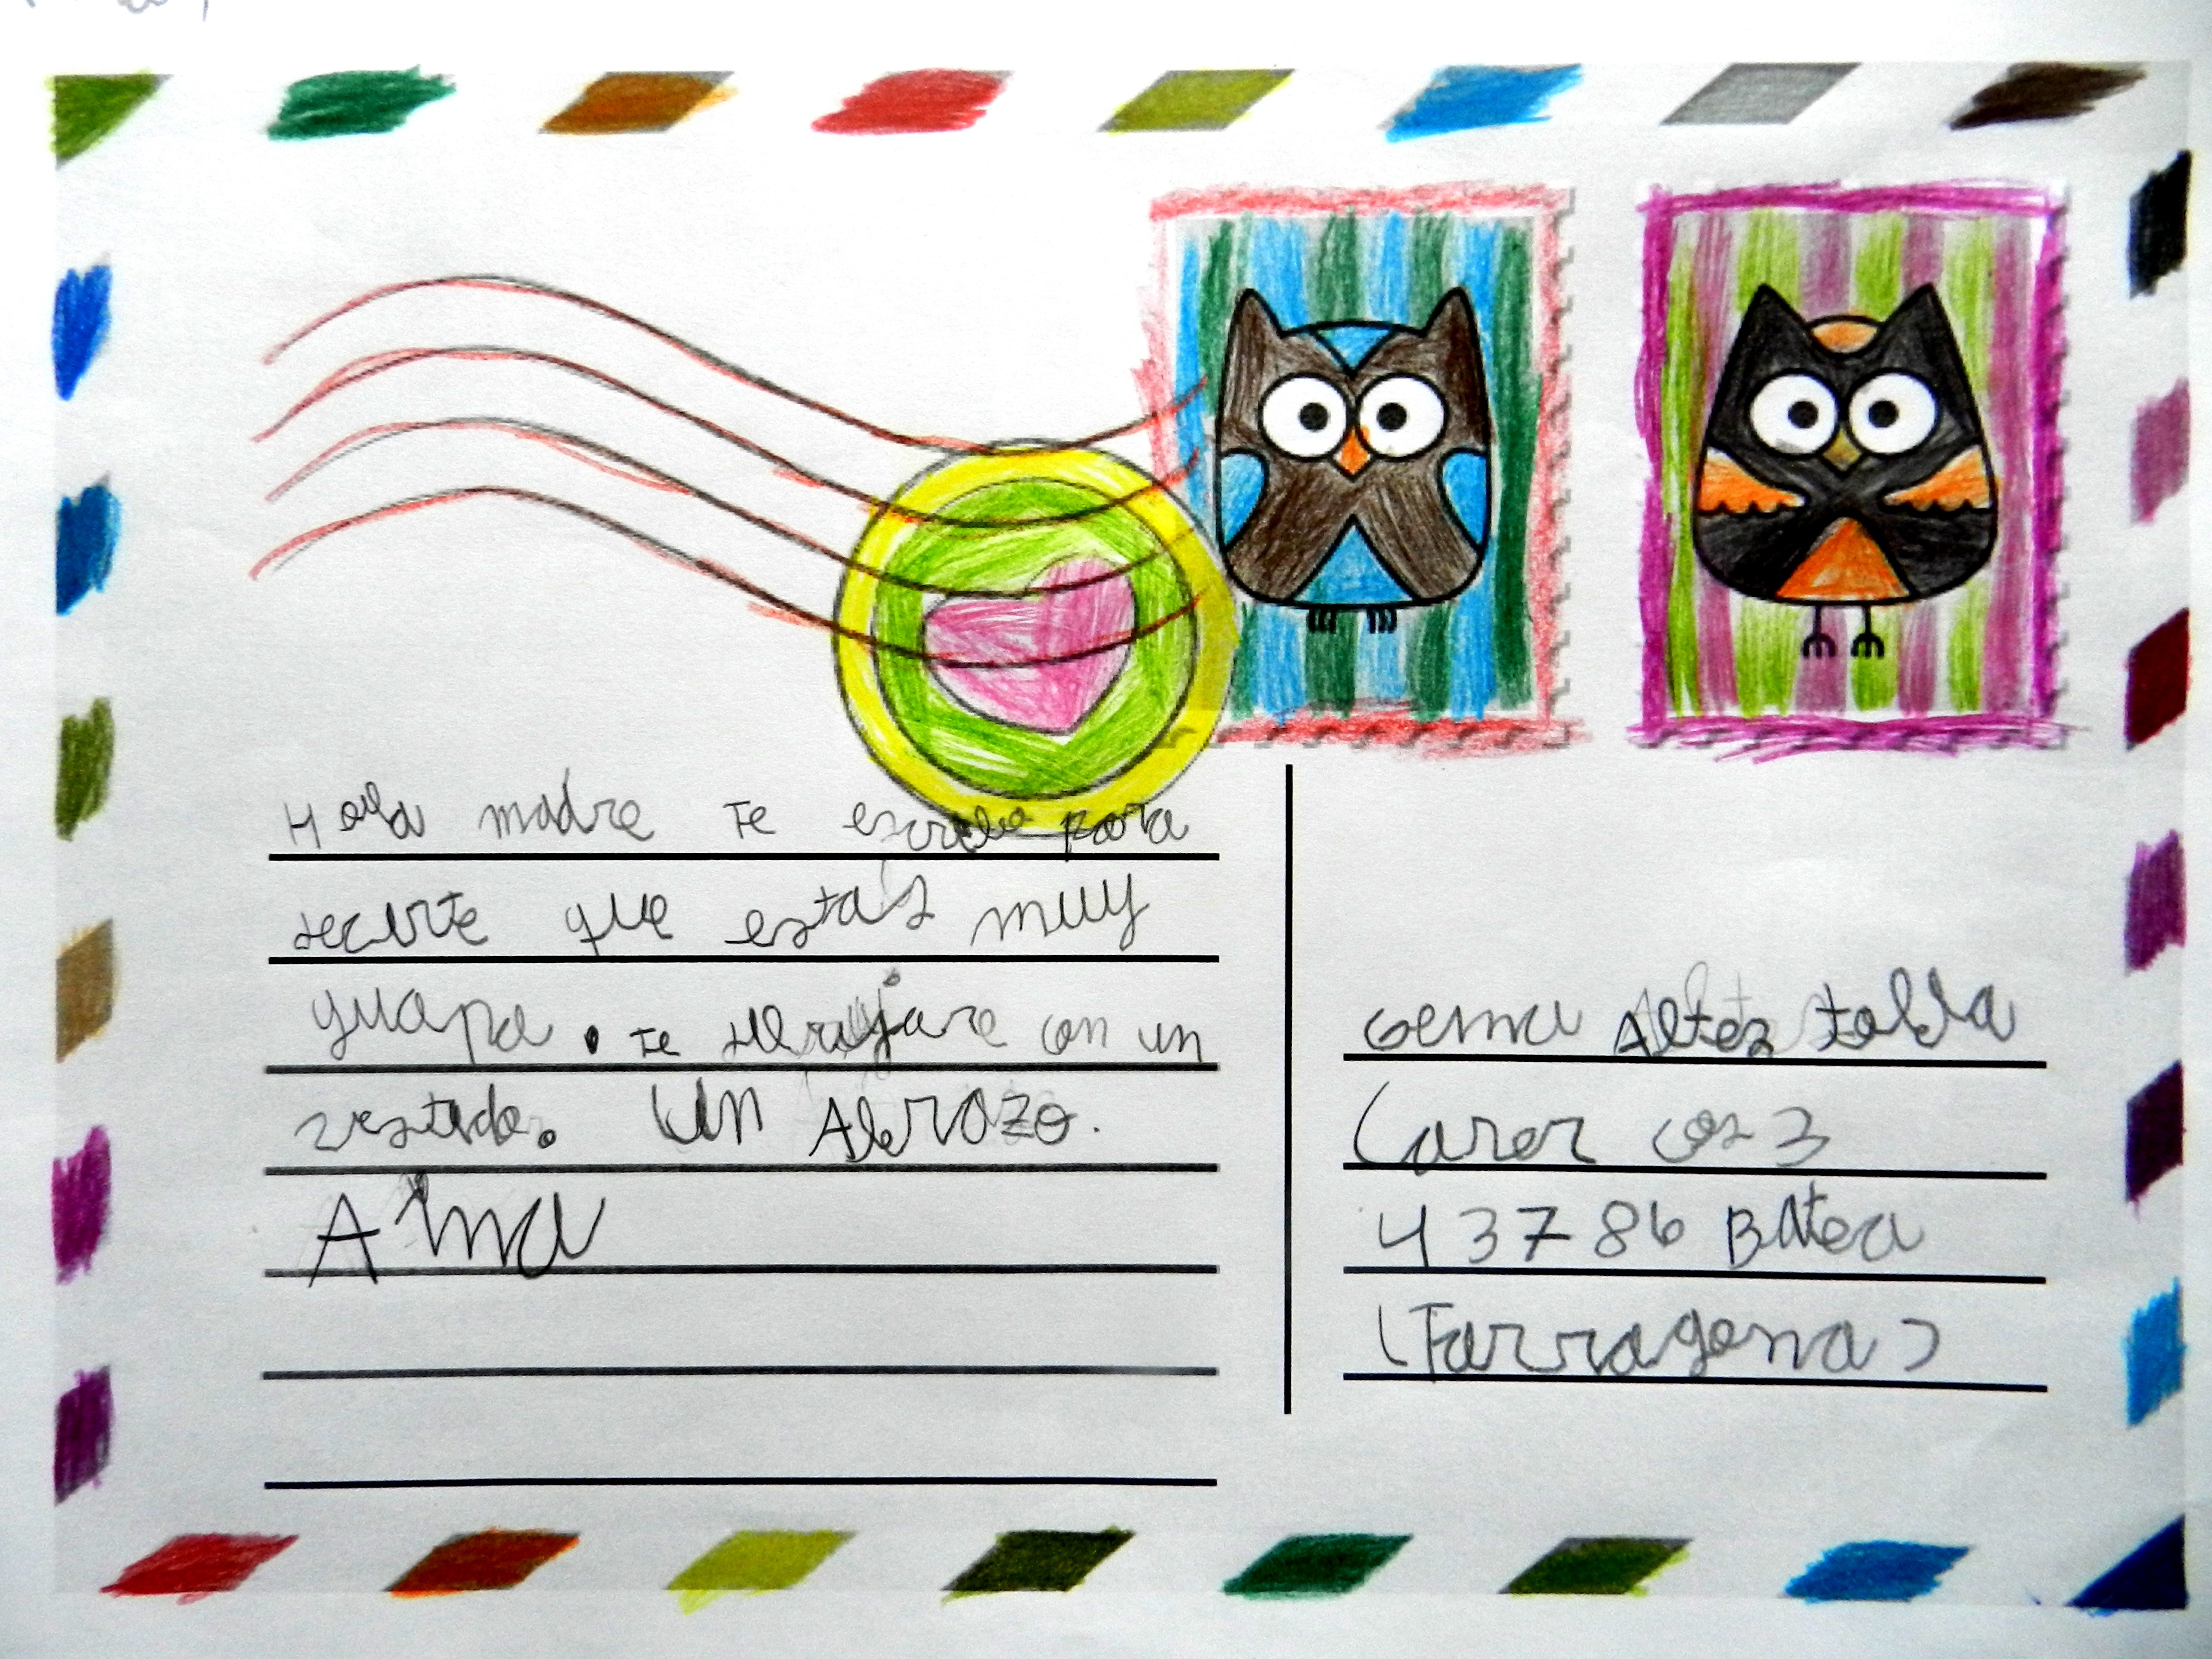 Hola madre te escribo para
decirte que estás muy
guapa. te dibujare con un
vestido. Un Abrazo.
Alma
Gema Altes
Carer 3
43786 Batea
(Tarragona)